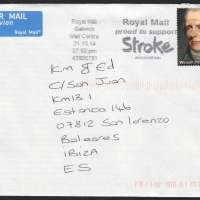 AIR MAIL
Royal Mail
Royal Mail
Gatwick
Mail Centre
21-10-14
07:50 pm
43906781
Royal Mail
proud to support
Stroke
Km & Ed
C/San Juan
Km 13.1
Estanco 146
07812 San Lorenzo
Baleares
IBIZA
ES